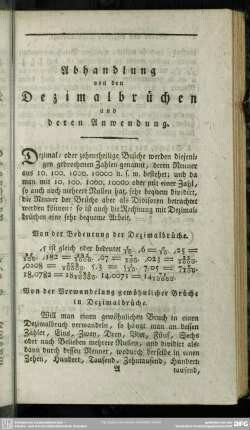 Abhandlung
von den
Dezimalbrüchen
und
deren Anwendung.
Dezimal- oder zehentheilige Brüche werden diejeni-
gen gebrochenen Zahlen genannt, deren Nenner
aus 10, 100, 1000, 10000 u. s. w. bestehet; und da
man mit 10, 100, 1000, 10000 oder mit einer Zahl,
so auch noch mehrere Nullen hat, sehr bequem dividirt,
die Nenner der Brüche aber als Divisoren betrachtet
werden können: so ist auch die Rechnung mit Dezimal-
brüchen eine sehr bequeme Arbeit.
Von der Bedeutung der Dezimalbrüche.
,5 ist gleich oder bedeutet
Von der Verwandelung gewöhnlicher Brüche
in Dezimalbrüche.
Will man einen gewöhnlichen Bruch in einen
Dezimalbruch verwandeln, so hängt man an dessen
Zähler, Eins, Zwey, Drey, Vier, Fünf, Sechs
oder nach Belieben mehrere Nullen, und dividirt als-
dann durch dessen Nenner, wodurch derselbe in einen
Zehen, Hundert, Tausend, Zehntausend, Hundert-
A tausend,